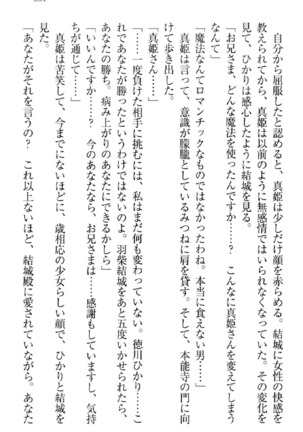 自分から屈服したと認めると、真姫は少しだけ顔を赤らめる。結城に女性の快感を
教えられてから、真姫は以前のように無感情ではなくなっていた。その変化を
見て、ひかりは感心したように結城を見る。
「お兄さま、どんな魔法を使ったんですか……？　こんなに真姫さんを変えてしま
うなんて」
「魔法なんてロマンチックなものではなかったわね。本当に食えない男……」
真姫は言って、意識が朦朧としているみつねに肩を貸す。そして、本能寺の門に向
けて歩き出した。
「真姫さん……」
「……一度負けた相手に挑むには、私はまだ何も変わっていない。徳川ひかり……こ
れであなたが勝ったというわけではないのよ。羽柴結城をあと五度いかせられたら、
あなたの勝ち。病み上がりのあなたにできるかしら」
「いいんですか……？　今のあなたなら、お兄さまは……感謝もしていますし、気持
ちが通じて……」
真姫は苦笑して、今までにないほどに、歳相応の少女らしい顔で、ひかりと結城を
見た。
「あなたがそれを言うの？　これ以上ないほど、結城殿に愛されていながら。あなた